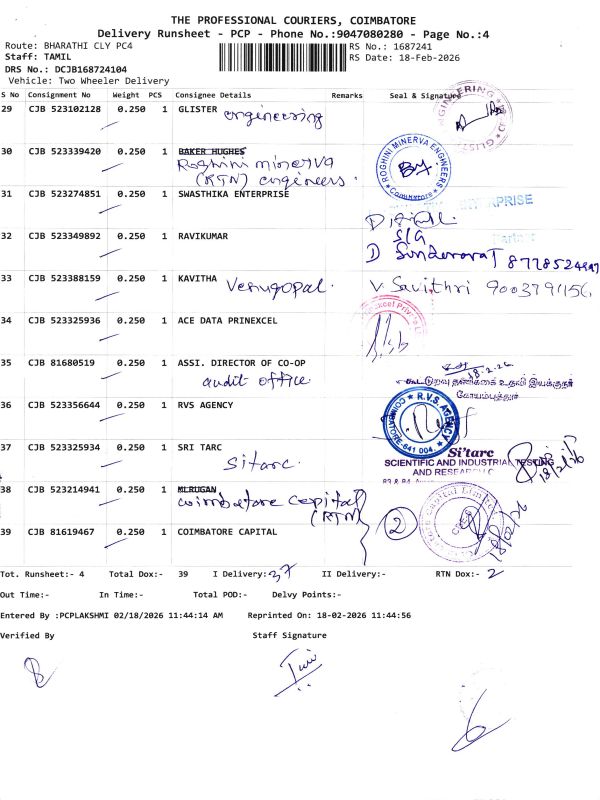 THE PROFESSIONAL COURIERS, COIMBATORE
Delivery Runsheet - PCP - Phone No.:9047080280 - Page No.:4
Route: BHARATHI CLY PC4
RS No.: 1687241
Staff: TAMIL
RS Date: 18-Feb-2026
DRS No.: DCJB168724104
Vehicle: Two Wheeler Delivery
S No Consignment No Weight PCS Consignee Details Remarks Seal & Signature
29 CJB 523102128 0.250 1 GLISTER
engineering
30 CJB 523339420 0.250 1 BAKER HUGHES
Roghini minerva
(RTN) engineers.
ROGHINI MINERVA ENGINEERS
Coimbatore
31 CJB 523274851 0.250 1 SWASTHIKA ENTERPRISE
32 CJB 523349892 0.250 1 RAVIKUMAR
S/G
D Sunderaraj 8778524447
33 CJB 523388159 0.250 1 KAVITHA
Venugopal.
V. Savithri
34 CJB 523325936 0.250 1 ACE DATA PRINEXCEL
35 CJB 81680519 0.250 1 ASSI. DIRECTOR OF CO-OP
audit office
18-2-26
கூட்டுறவு தணிக்கை உதவி இயக்குநர்
கோயம்புத்தூர்
36 CJB 523356644 0.250 1 RVS AGENCY
R.V.S. AGENCY
COIMBATORE-641 004.
37 CJB 523325934 0.250 1 SRI TARC
Sitarc.
Si'tarc
SCIENTIFIC AND INDUSTRIAL TESTING
AND RESEARCH
18/2/26
38 CJB 523214941 0.250 1 MLRUGAN
Coimbatore Capital
(RTN)
2
39 CJB 81619467 0.250 1 COIMBATORE CAPITAL
18/02/26
Tot. Runsheet:- 4 Total Dox:- 39 I Delivery:- 37 II Delivery:- RTN Dox:- 2
Out Time:- In Time:- Total POD:- Delvy Points:-
Entered By :PCPLAKSHMI 02/18/2026 11:44:14 AM Reprinted On: 18-02-2026 11:44:56
Verified By Staff Signature